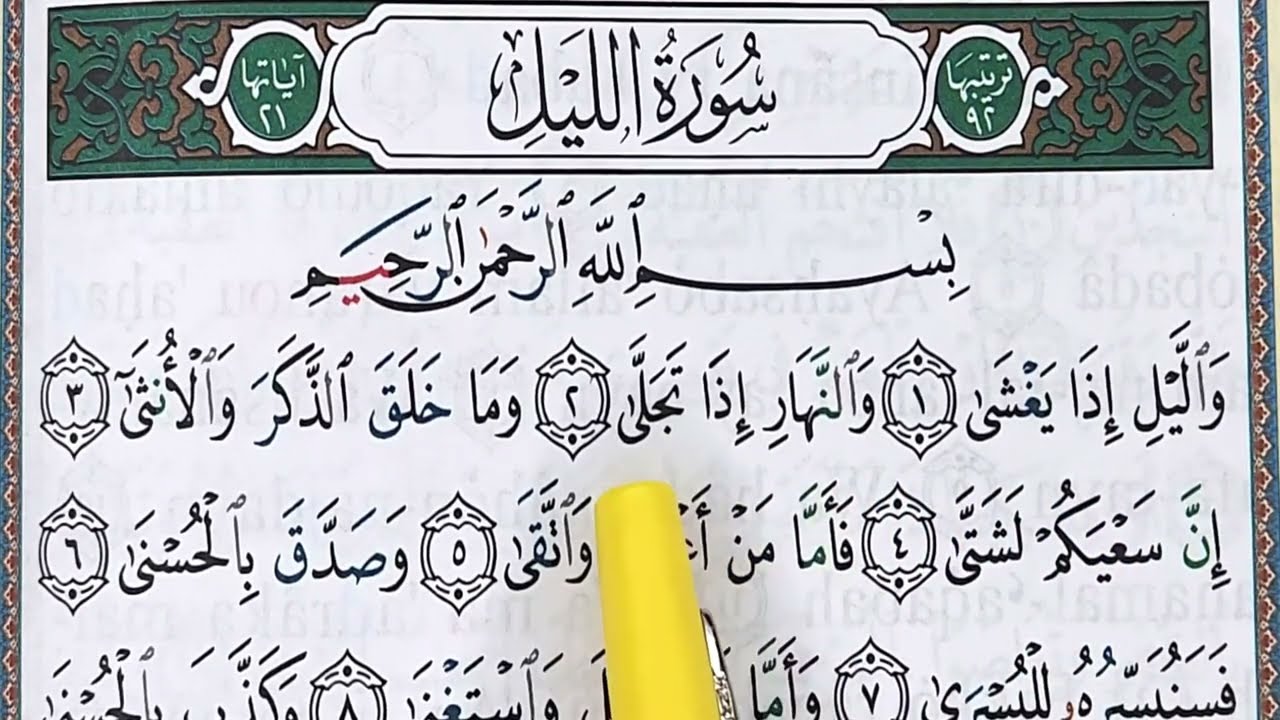 ترتيبها ٩٢
سُورَةُ اللَّيْلِ
آيَاتُهَا ٢١
بِسْمِ ٱللَّهِ ٱلرَّحْمَٰنِ ٱلرَّحِيمِ
وَٱلَّيْلِ إِذَا يَغْشَىٰ ١ وَٱلنَّهَارِ إِذَا تَجَلَّىٰ ٢ وَمَا خَلَقَ ٱلذَّكَرَ وَٱلْأُنثَىٰٓ ٣
إِنَّ سَعْيَكُمْ لَشَتَّىٰ ٤ فَأَمَّا مَنْ وَٱتَّقَىٰ ٥ وَصَدَّقَ بِٱلْحُسْنَىٰ ٦
فَسَنُيَسِّرُهُۥ لِلْيُسْرَىٰ ٧ وَأَمَّا وَٱسْتَغْنَىٰ ٨ وَكَذَّبَ بِٱلْحُسْنَىٰ